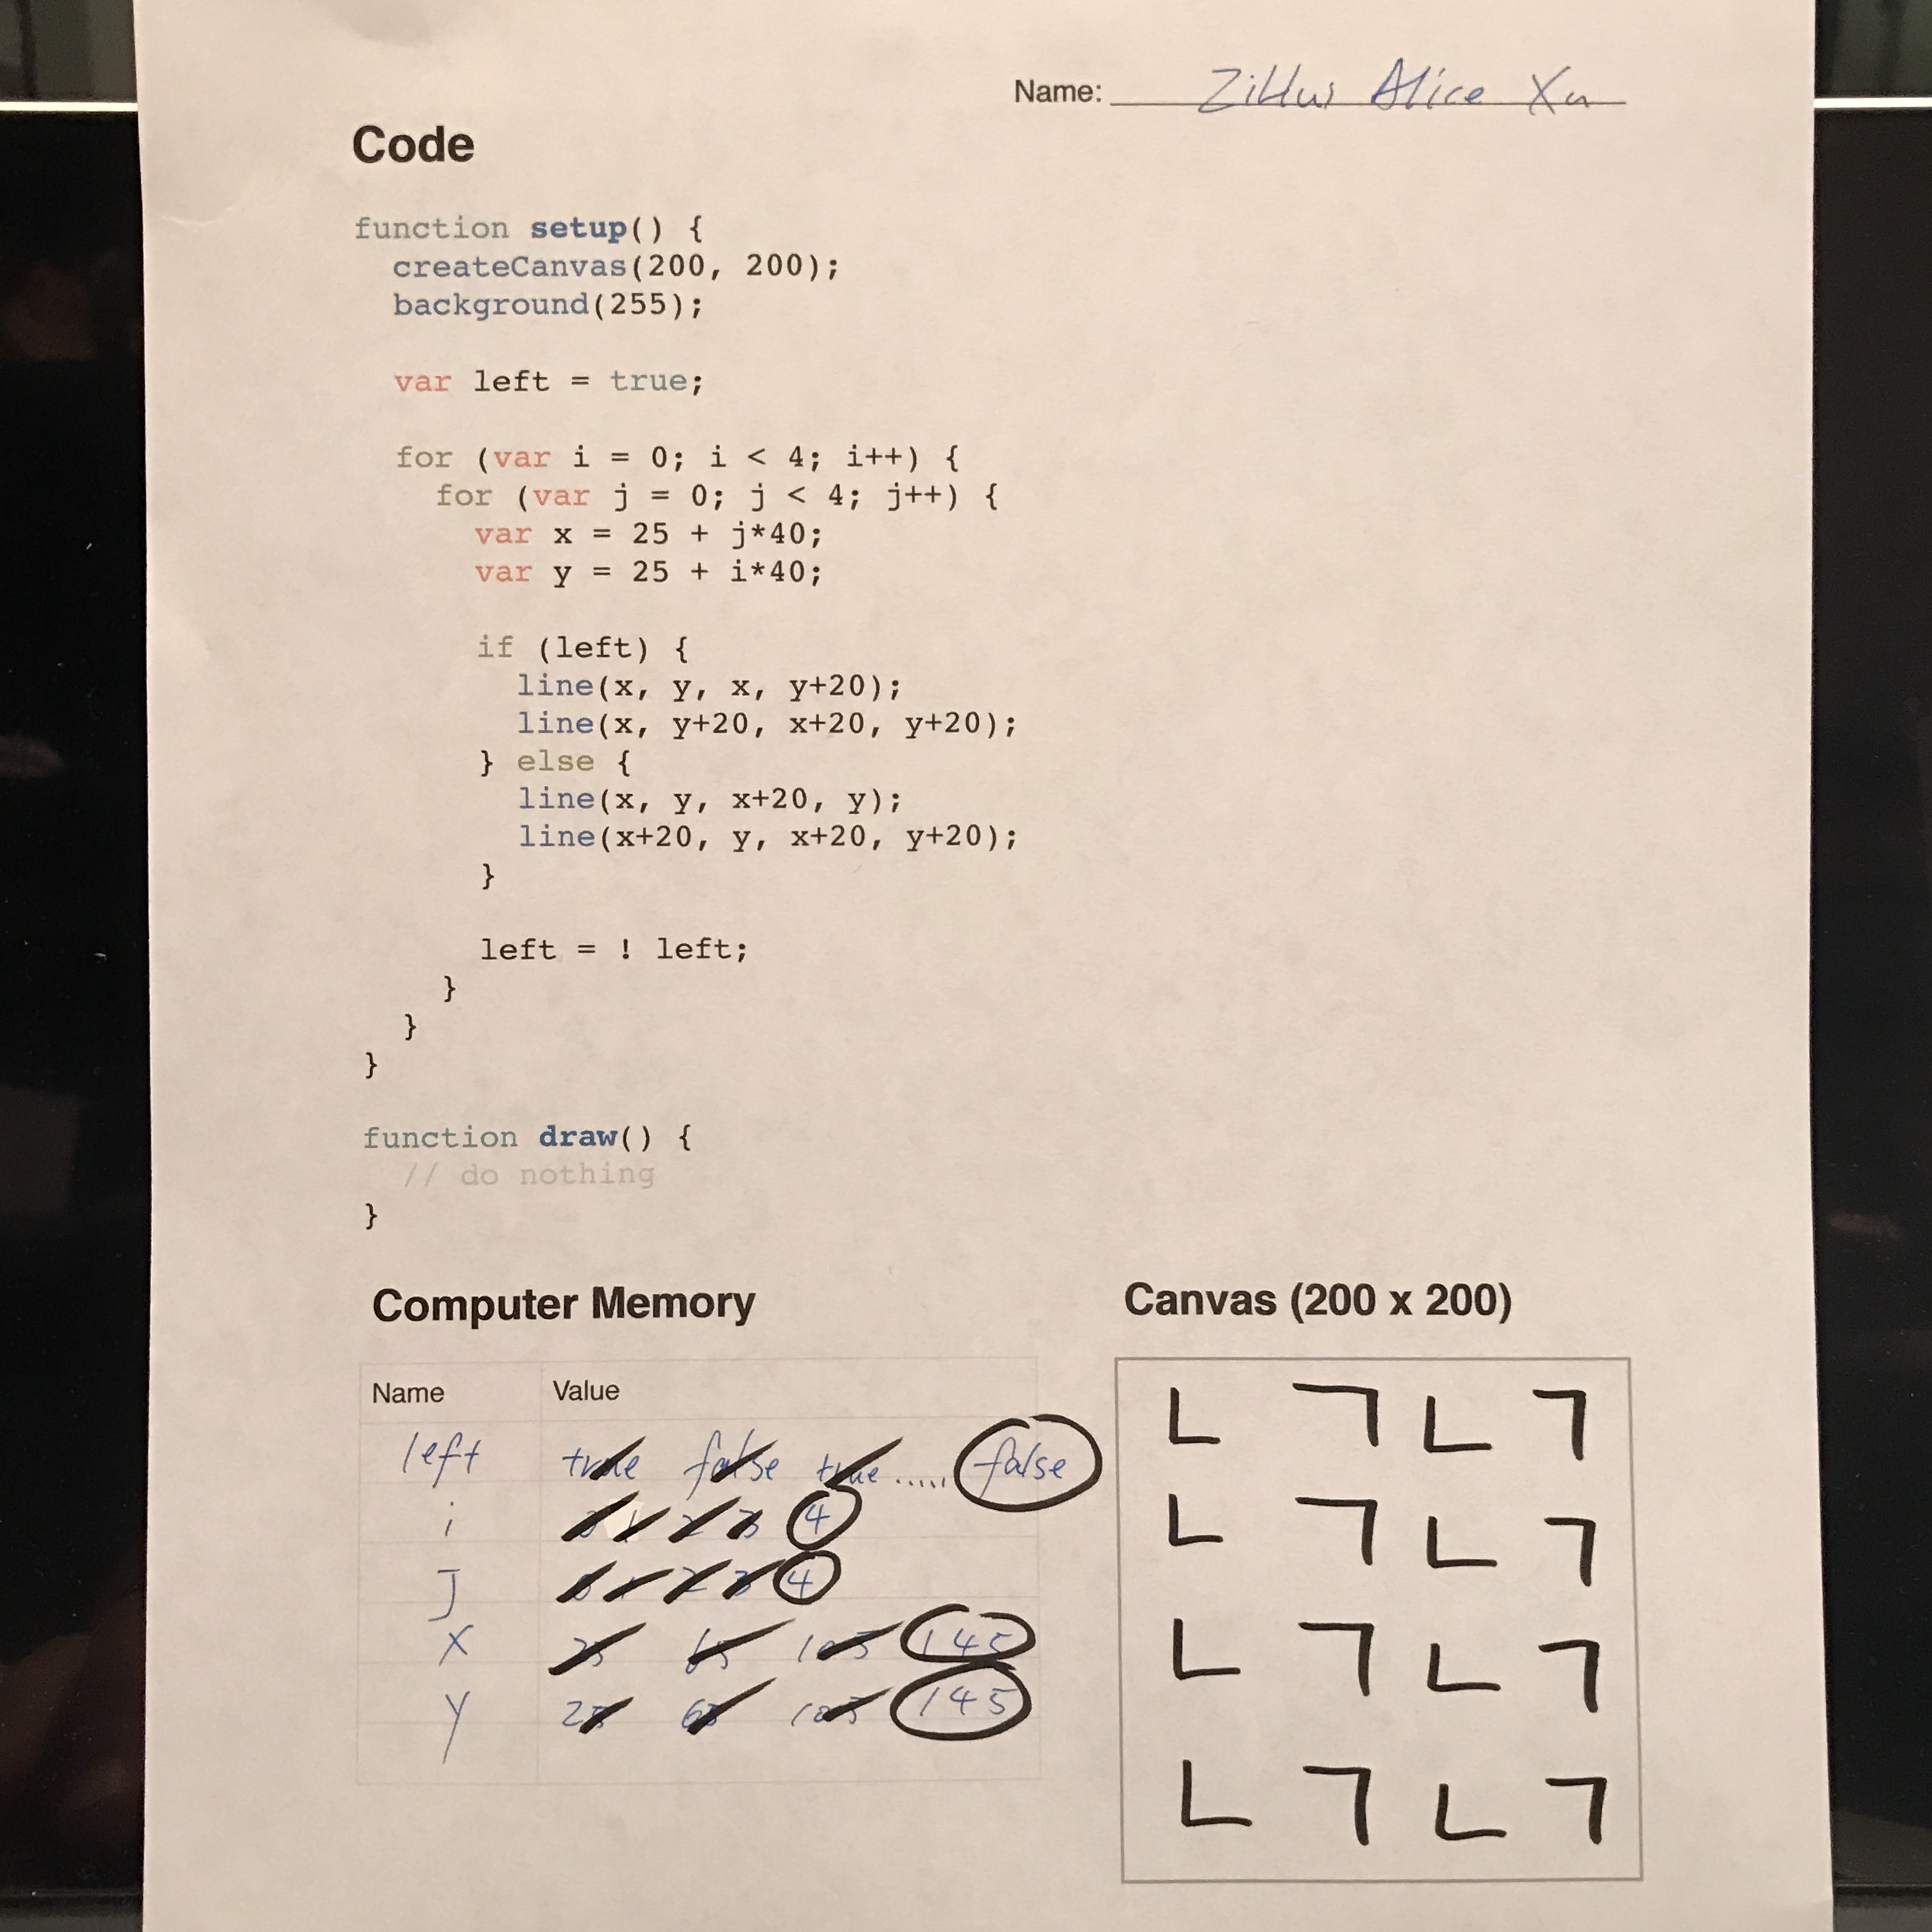 Name: Alice Xu
Code
function setup() {
createCanvas(200, 200);
background(255);
var left = true;
for (var i = 0; i < 4; i++) {
for (var j = 0; j < 4; j++) {
var x = 25 + j*40;
var y = 25 + i*40;
if (left) {
line(x, y, x, y+20);
line(x, y+20, x+20, y+20);
} else {
line(x, y, x+20, y);
line(x+20, y, x+20, y+20);
}
left = ! left;
}
}
}
function draw() {
// do nothing
}
Computer Memory
Name Value
left true false true ..... false
i 0 1 2 3 4
J 0 1 2 3 4
X 25 65 105 145
y 25 65 105 145
Canvas (200 x 200)